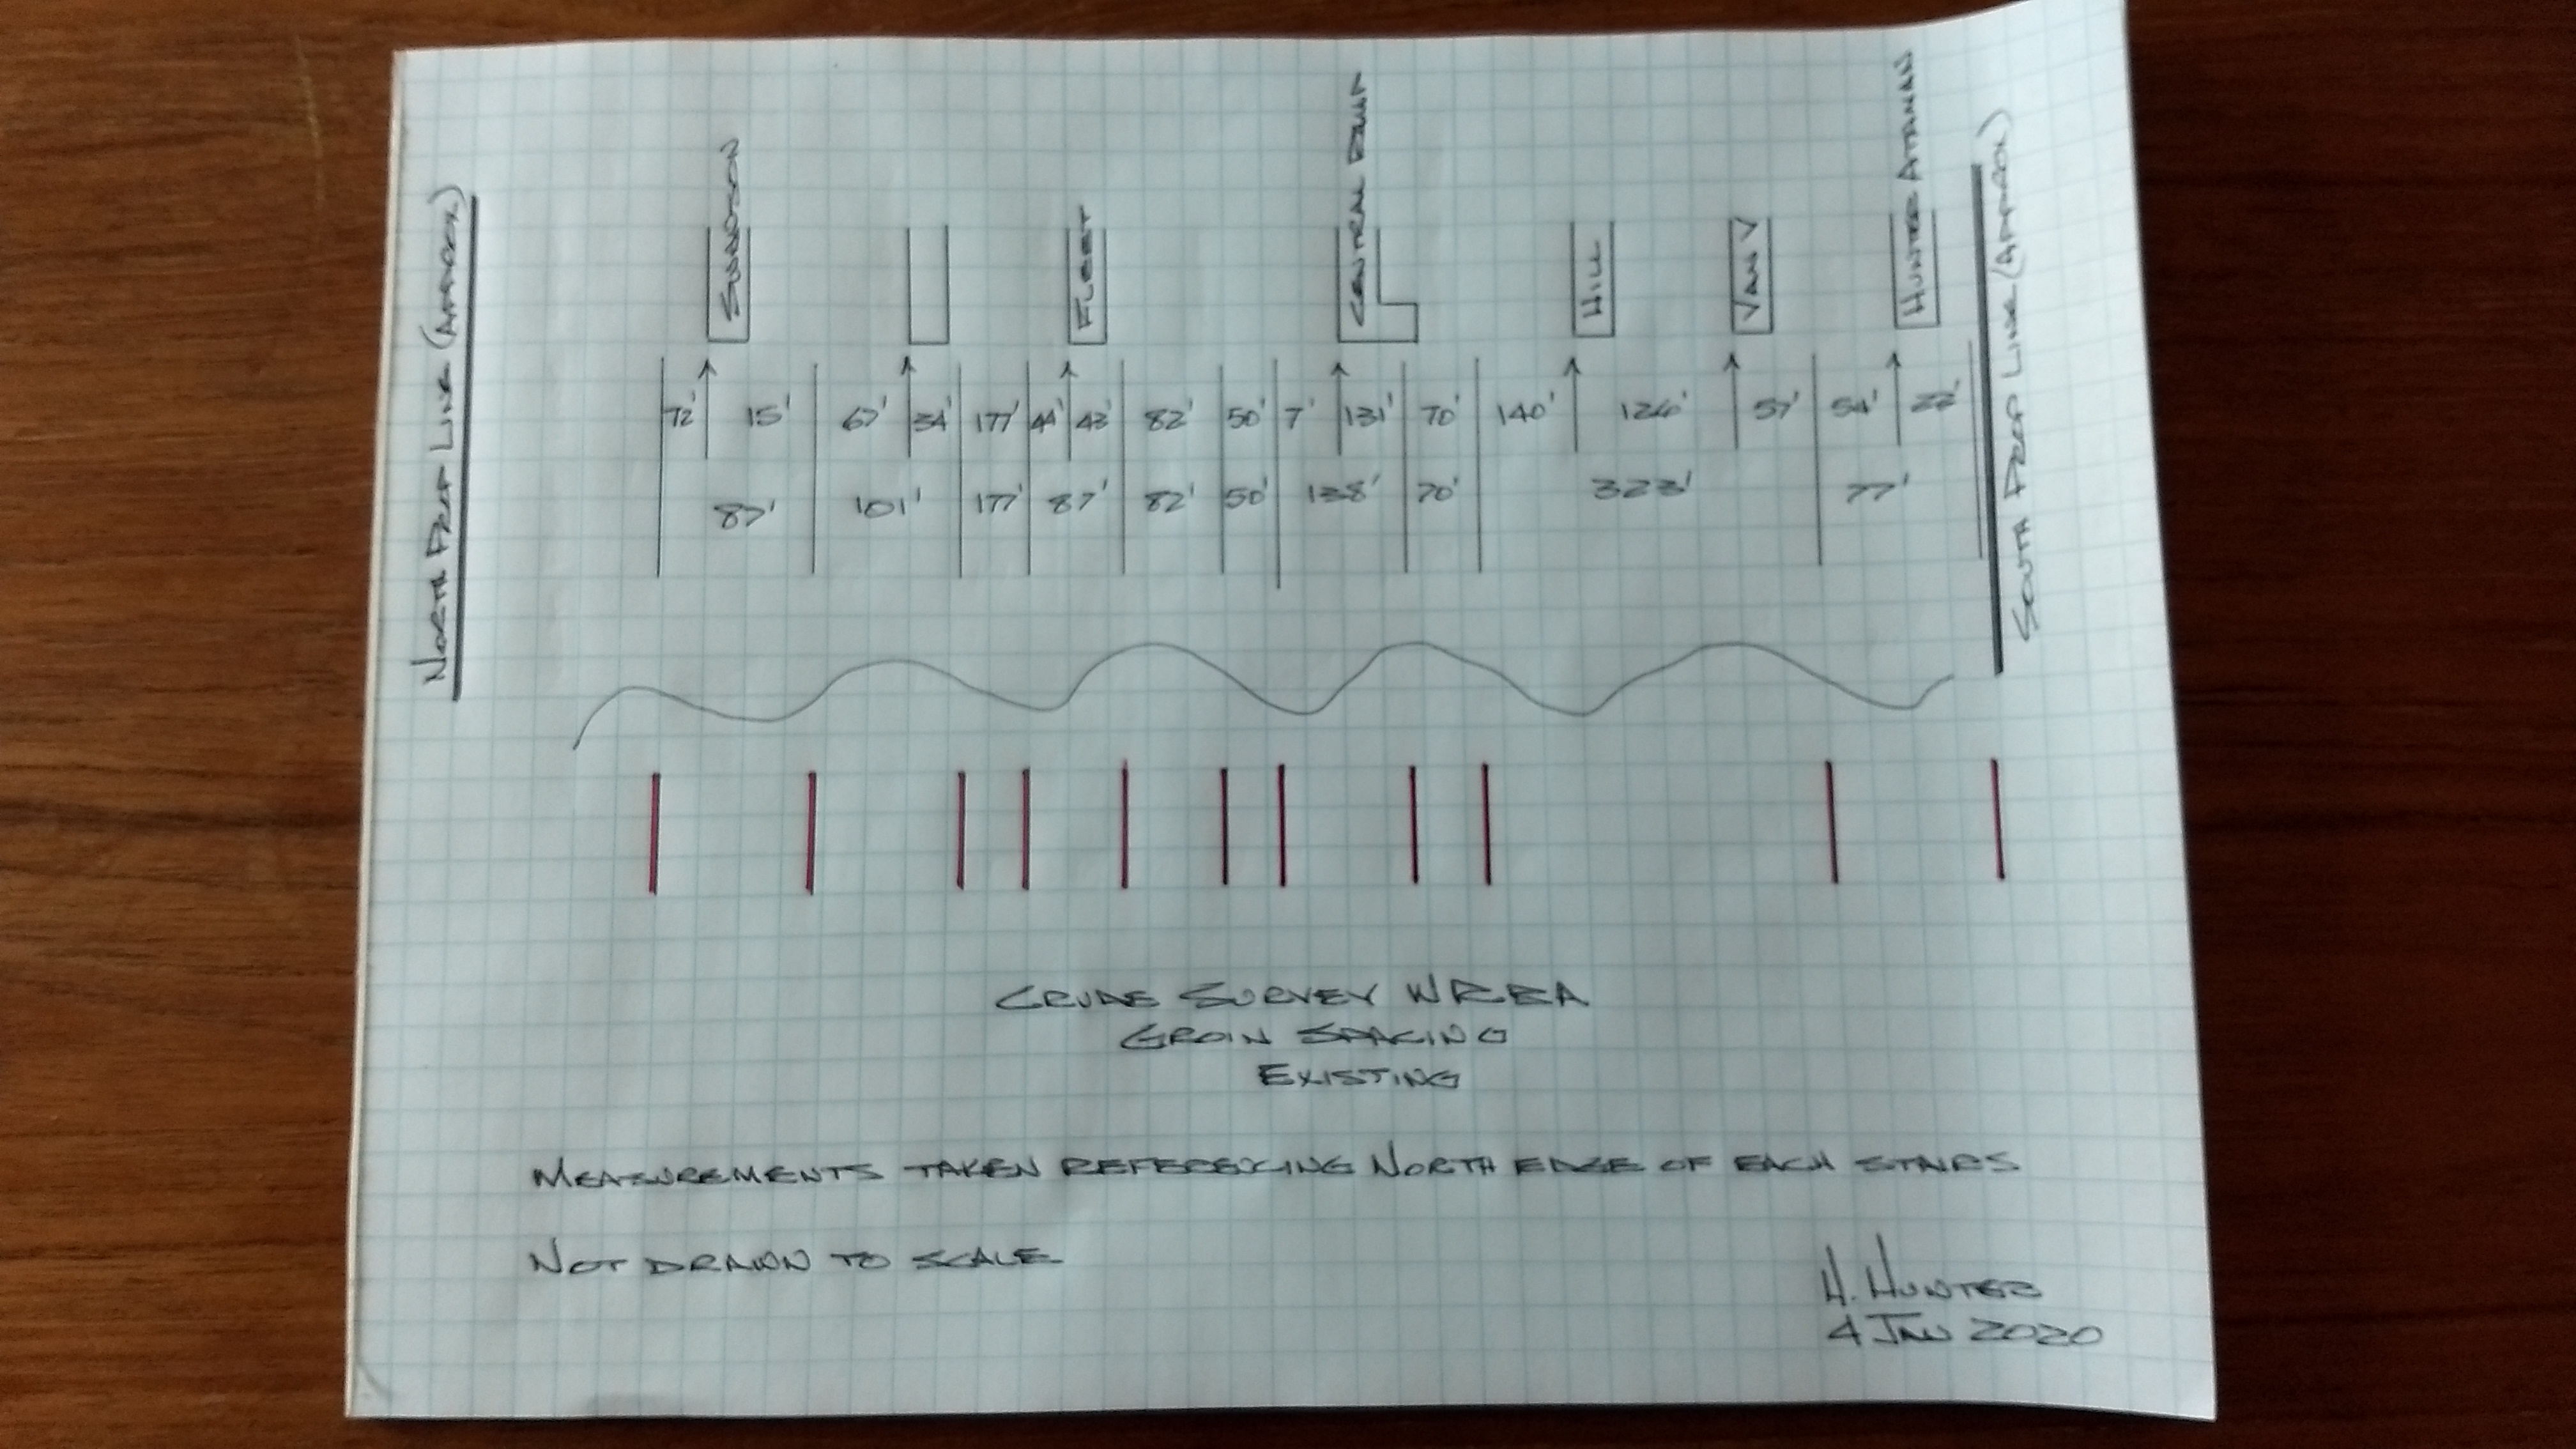 NORTH PROP LINE (APPROX)
SWANSON
FLEET
CENTRAL RAMP
HILL
VAN V
HUNTER ATMAN
SOUTH PROP LINE (APPROX)
72' 15' 67' 34' 177' 44' 43' 82' 50' 7' 131' 70' 140' 126' 57' 54' 22'
87' 101' 177' 87' 82' 50' 138' 70' 323' 77'
CRUDE SURVEY WRBA
GROIN SPACING
EXISTING
MEASUREMENTS TAKEN REFERENCING NORTH EDGE OF EACH STAIRS
NOT DRAWN TO SCALE
H. HUNTER
4 JAN 2020